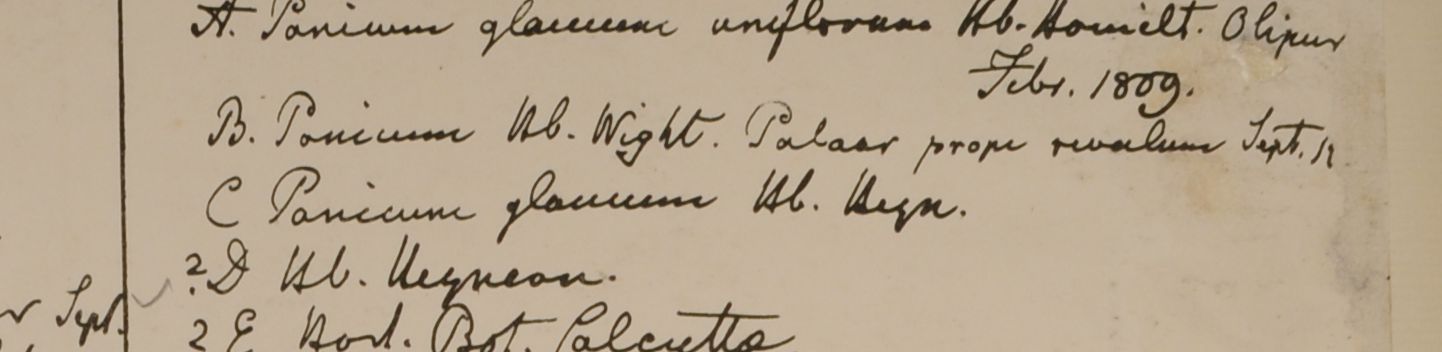 A. Panicum glaucum uniflorum Hb. Hamilt. Olipur
Febr. 1809.
B. Panicum Hb. Wight. Palaar prope Sept. 12
C Panicum glaucum Hb. Heyn.
? D Hb. Heynean.
Sept.
? E Hort. Bot. Calcutta